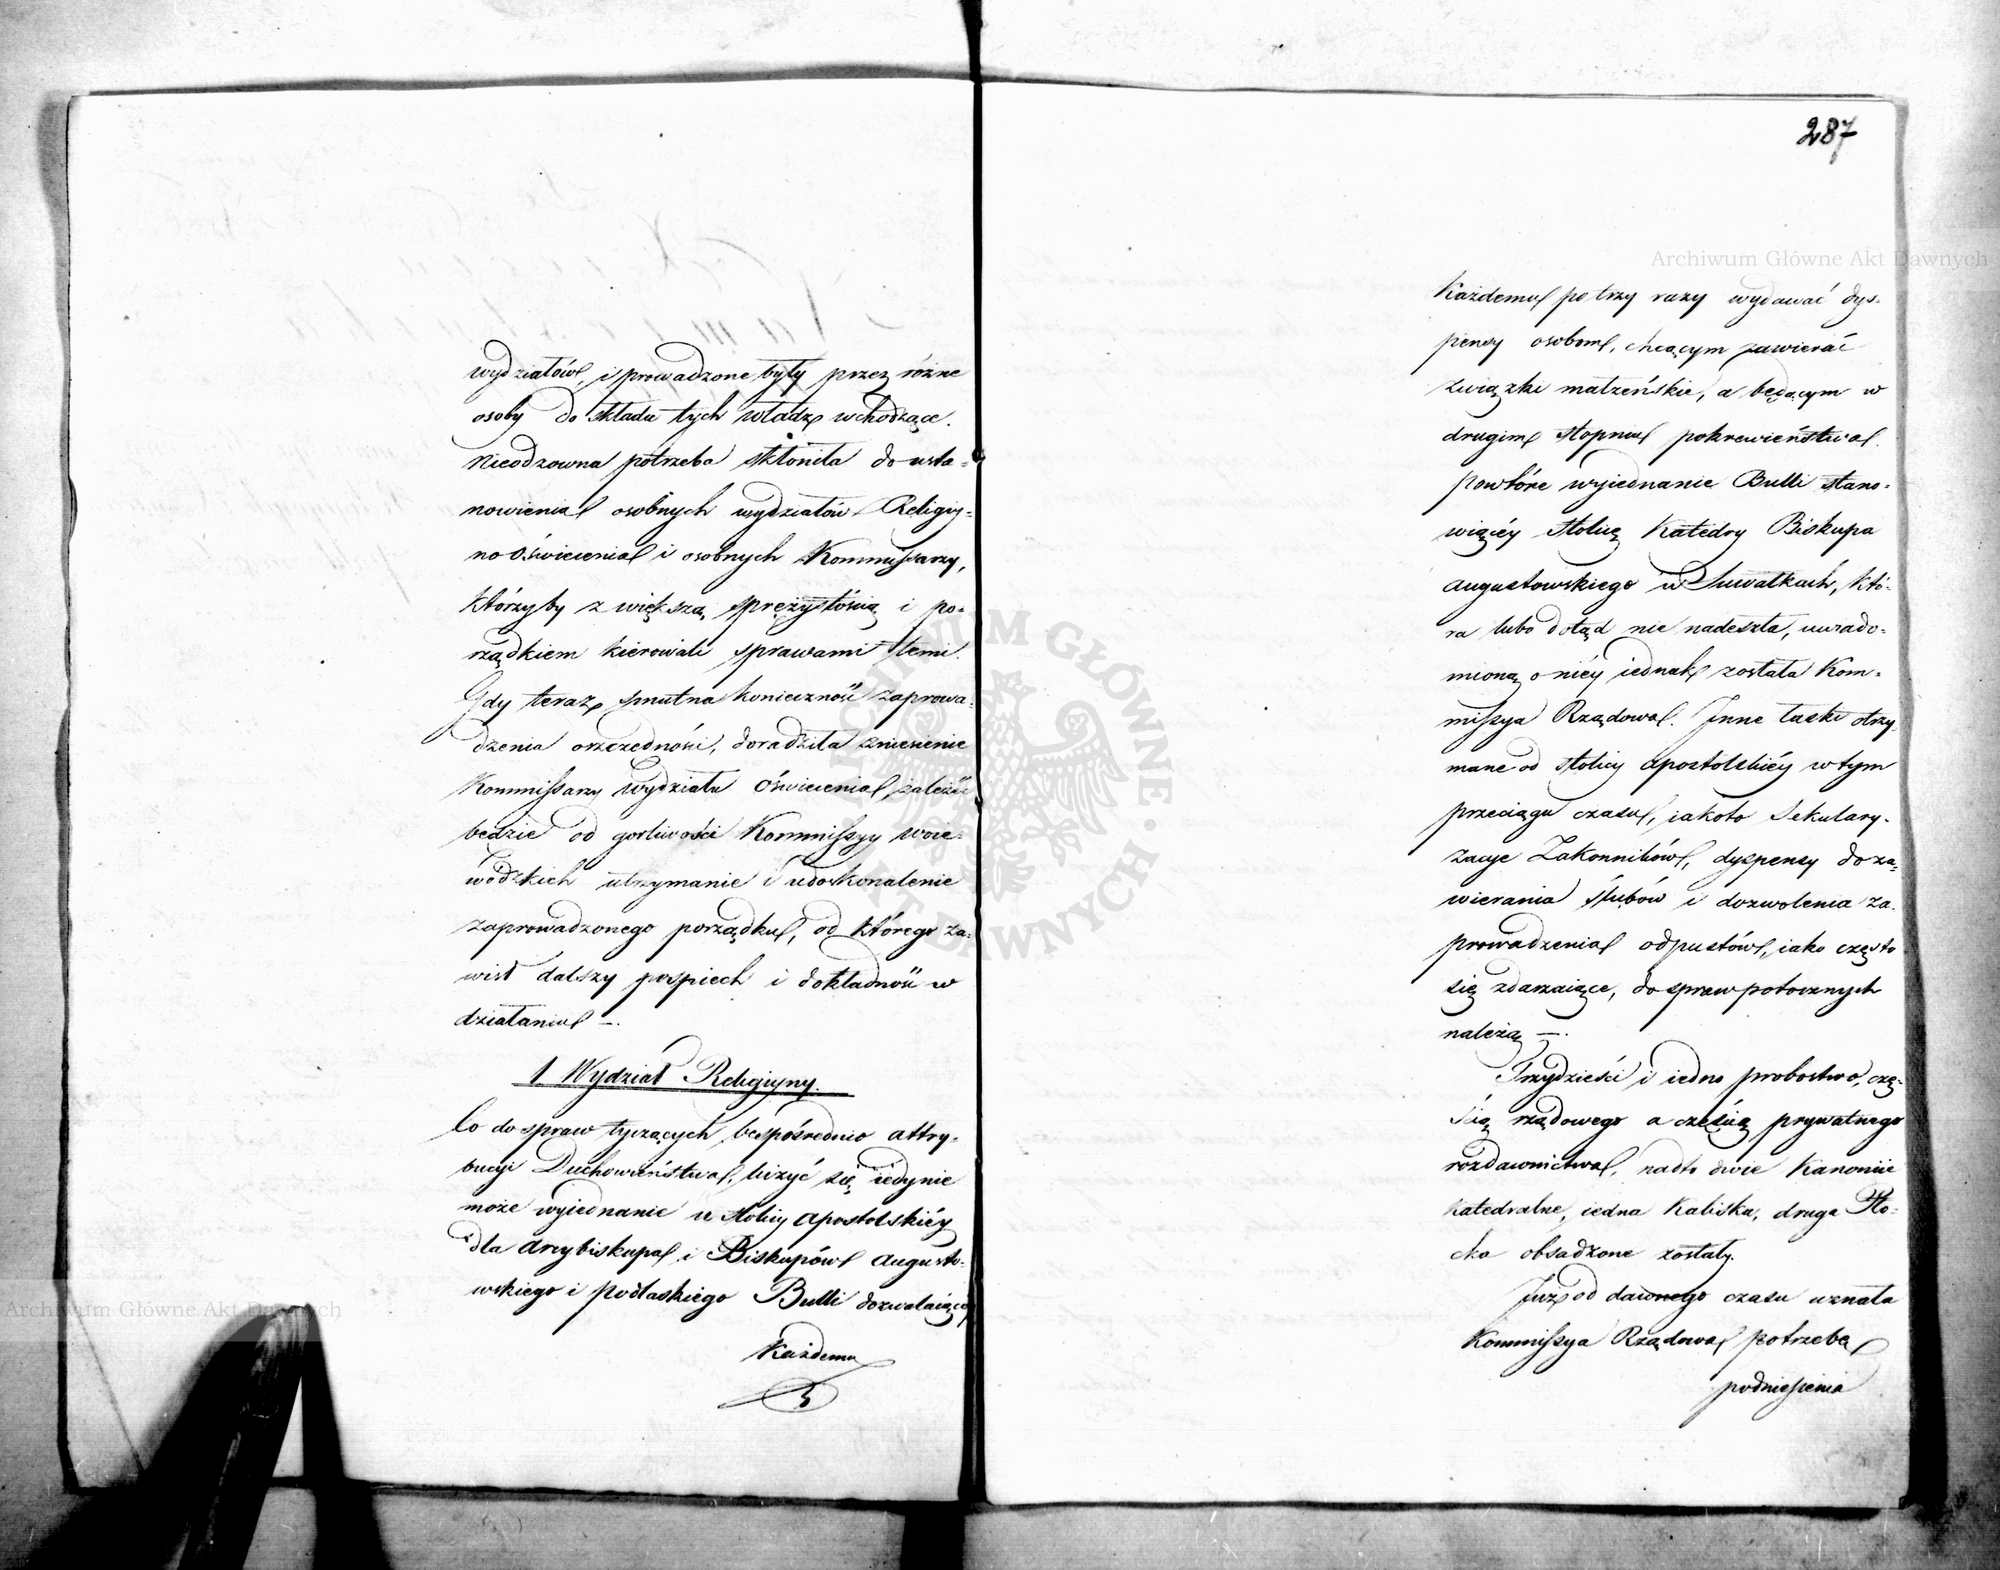 wydziałów, i prowadzone były przez różne
osoby do składu tych władz wchodzące.
Nieodzowna potrzeba skłoniła do usta-
nowienia osobnych wydziałów Religiy-
no Oświecenia i osobnych Kommissarzy,
którzyby z większą sprężystością i po-
rządkiem kierowali sprawami temi.
Gdy teraz smutna konieczność zaprowa-
dzenia oszczędności, doradziła zniesienie
Kommissarzy wydziału Oświecenia, zależeć
będzie od gorliwości Kommissyy woie-
wódzkich utrzymanie i udoskonalenie
zaprowadzonego porządku, od którego za-
wisł dalszy pospiech i dokładność w
działaniu —.
1. Wydział Religiyny.
Co do spraw tyczących bezpośrednio attry-
bucyi Duchowieństwa, liczyć się iedynie
może wyiednanie u stolicy apostolskiéy
dla arcybiskupa i Biskupów augusto-
wskiego i podlaskiego Bulli dozwalaiącéy
Każdemu
287
Archiwum Główne Akt Dawnych
Każdemu po trzy razy wydawać dys-
pensy osobom, chcącym zawierać
związki małżeńskie, a będącym w
drugim stopniu pokrewieństwa.
powtóre wyiednanie Bulli stano-
wiącéy stolicę Katedry Biskupa
augustowskiego w Suwałkach, któ-
ra lubo dotąd nie nadeszła, uwiado-
mioną o niéy iednak została Kom-
missya Rządowa. Inne łaski otrzy-
mane od stolicy apostolskiéy w tym
przeciągu czasu, iakoto Sekulary-
zacye Zakonników, dyspensy do za-
wierania ślubów i dozwolenia za-
prowadzenia odpustów, iako często
się zdarzaiące, do spraw potocznych
należą —.
Trzydzieści i iedno probostwo, czę-
ścią rządowego a częścią prywatnego
rozdawnictwa, nadto dwie Kanoniie
Katedralne, iedna Kaliska, druga Pło-
cka obsadzone zostały.
Już od dawnego czasu uznała
Kommissya Rządowa potrzebę
podniesienia
ARCHIWUM GŁÓWNE AKT DAWNYCH
Archiwum Główne Akt Dawnych